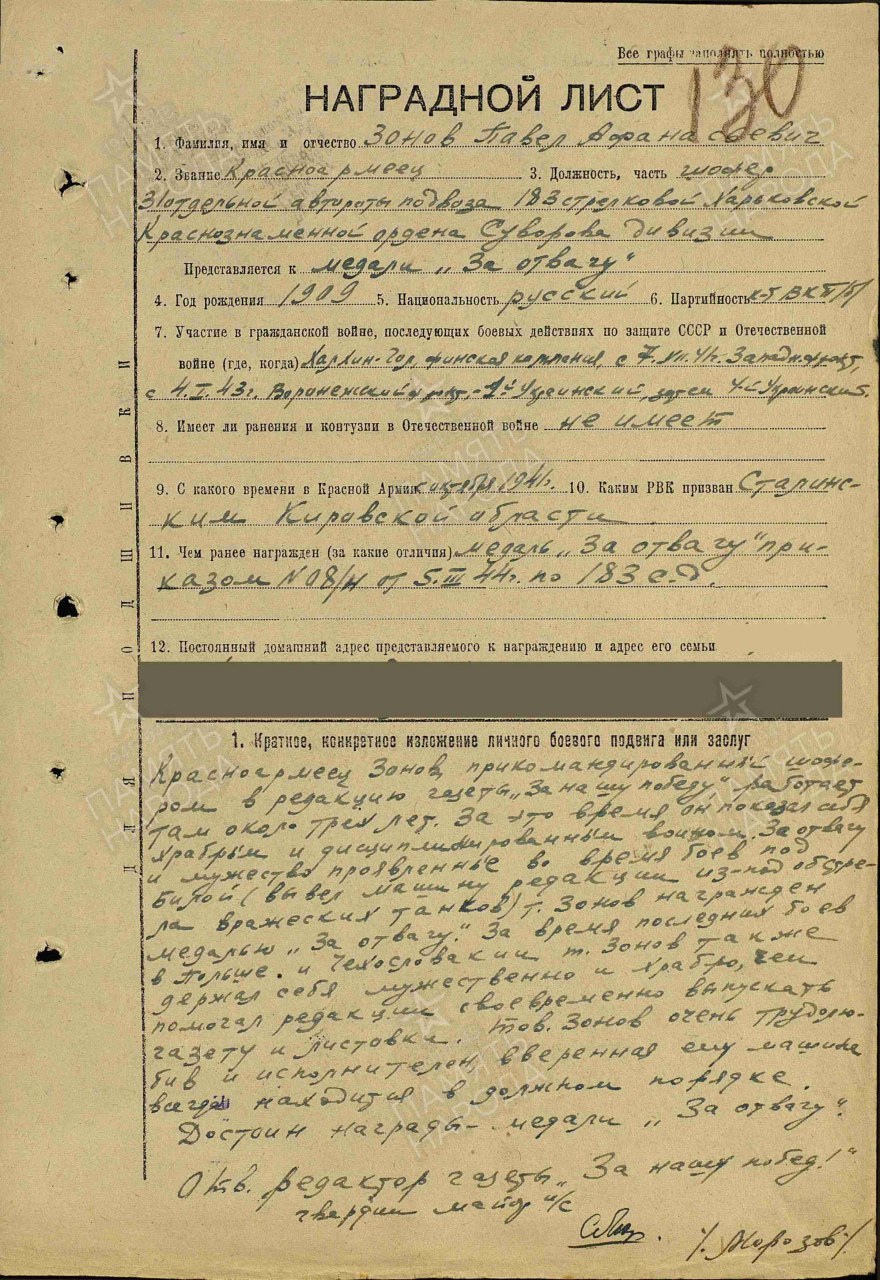 Все графы заполнять полностью
130
НАГРАДНОЙ ЛИСТ
1. Фамилия, имя и отчество Зонов Павел Афанасьевич
2. Звание Красноармеец 3. Должность, часть шофер
31 отдельной автороты подвоза 183 стрелковой Харьковской
Краснознаменной ордена Суворова дивизии
Представляется к медали „За отвагу"
4. Год рождения 1909 5. Национальность русский 6. Партийность к-т ВКП/б/
7. Участие в гражданской войне, последующих боевых действиях по защите СССР и Отечественной
войне (где, когда) Халхин-Гол, финская кампания, с 7.VII.41г. Западн. фронт,
с 4.I.43г. Воронежский фронт, 1й Украинский, затем 4-й Украинский.
8. Имеет ли ранения и контузии в Отечественной войне не имеет
9. С какого времени в Красной Армии с октября 1941г. 10. Каким РВК призван Сталинс-
ким Кировской области.
11. Чем ранее награжден (за какие отличия) медаль „За отвагу" при-
казом N 08/н от 5.III.44г. по 183 с.д.
12. Постоянный домашний адрес представляемого к награждению и адрес его семьи
ДЛЯ ПОДШИВКИ
1. Краткое, конкретное изложение личного боевого подвига или заслуг
Красноармеец Зонов, прикомандированный шофе-
ром в редакцию газеты „За нашу победу" работает
там около трех лет. За это время он показал себя
храбрым и дисциплинированным воином. За отвагу
и мужество проявленные во время боев под
Билой (вывел машину редакции из-под обстре-
ла вражеских танков) т. Зонов награжден
медалью „За отвагу". За время последних боев
в Польше и Чехословакии т. Зонов также
держал себя мужественно и храбро, чем
помогал редакции своевременно выпускать
газету и листовки. Тов. Зонов очень трудолю-
бив и исполнителен, вверенная ему машина
всегда находится в должном порядке.
Достоин награды - медали „За отвагу".
Отв. редактор газеты „За нашу победу!"
гвардии майор и/с
/Морозов/.
ПАМЯТЬ НАРОДА